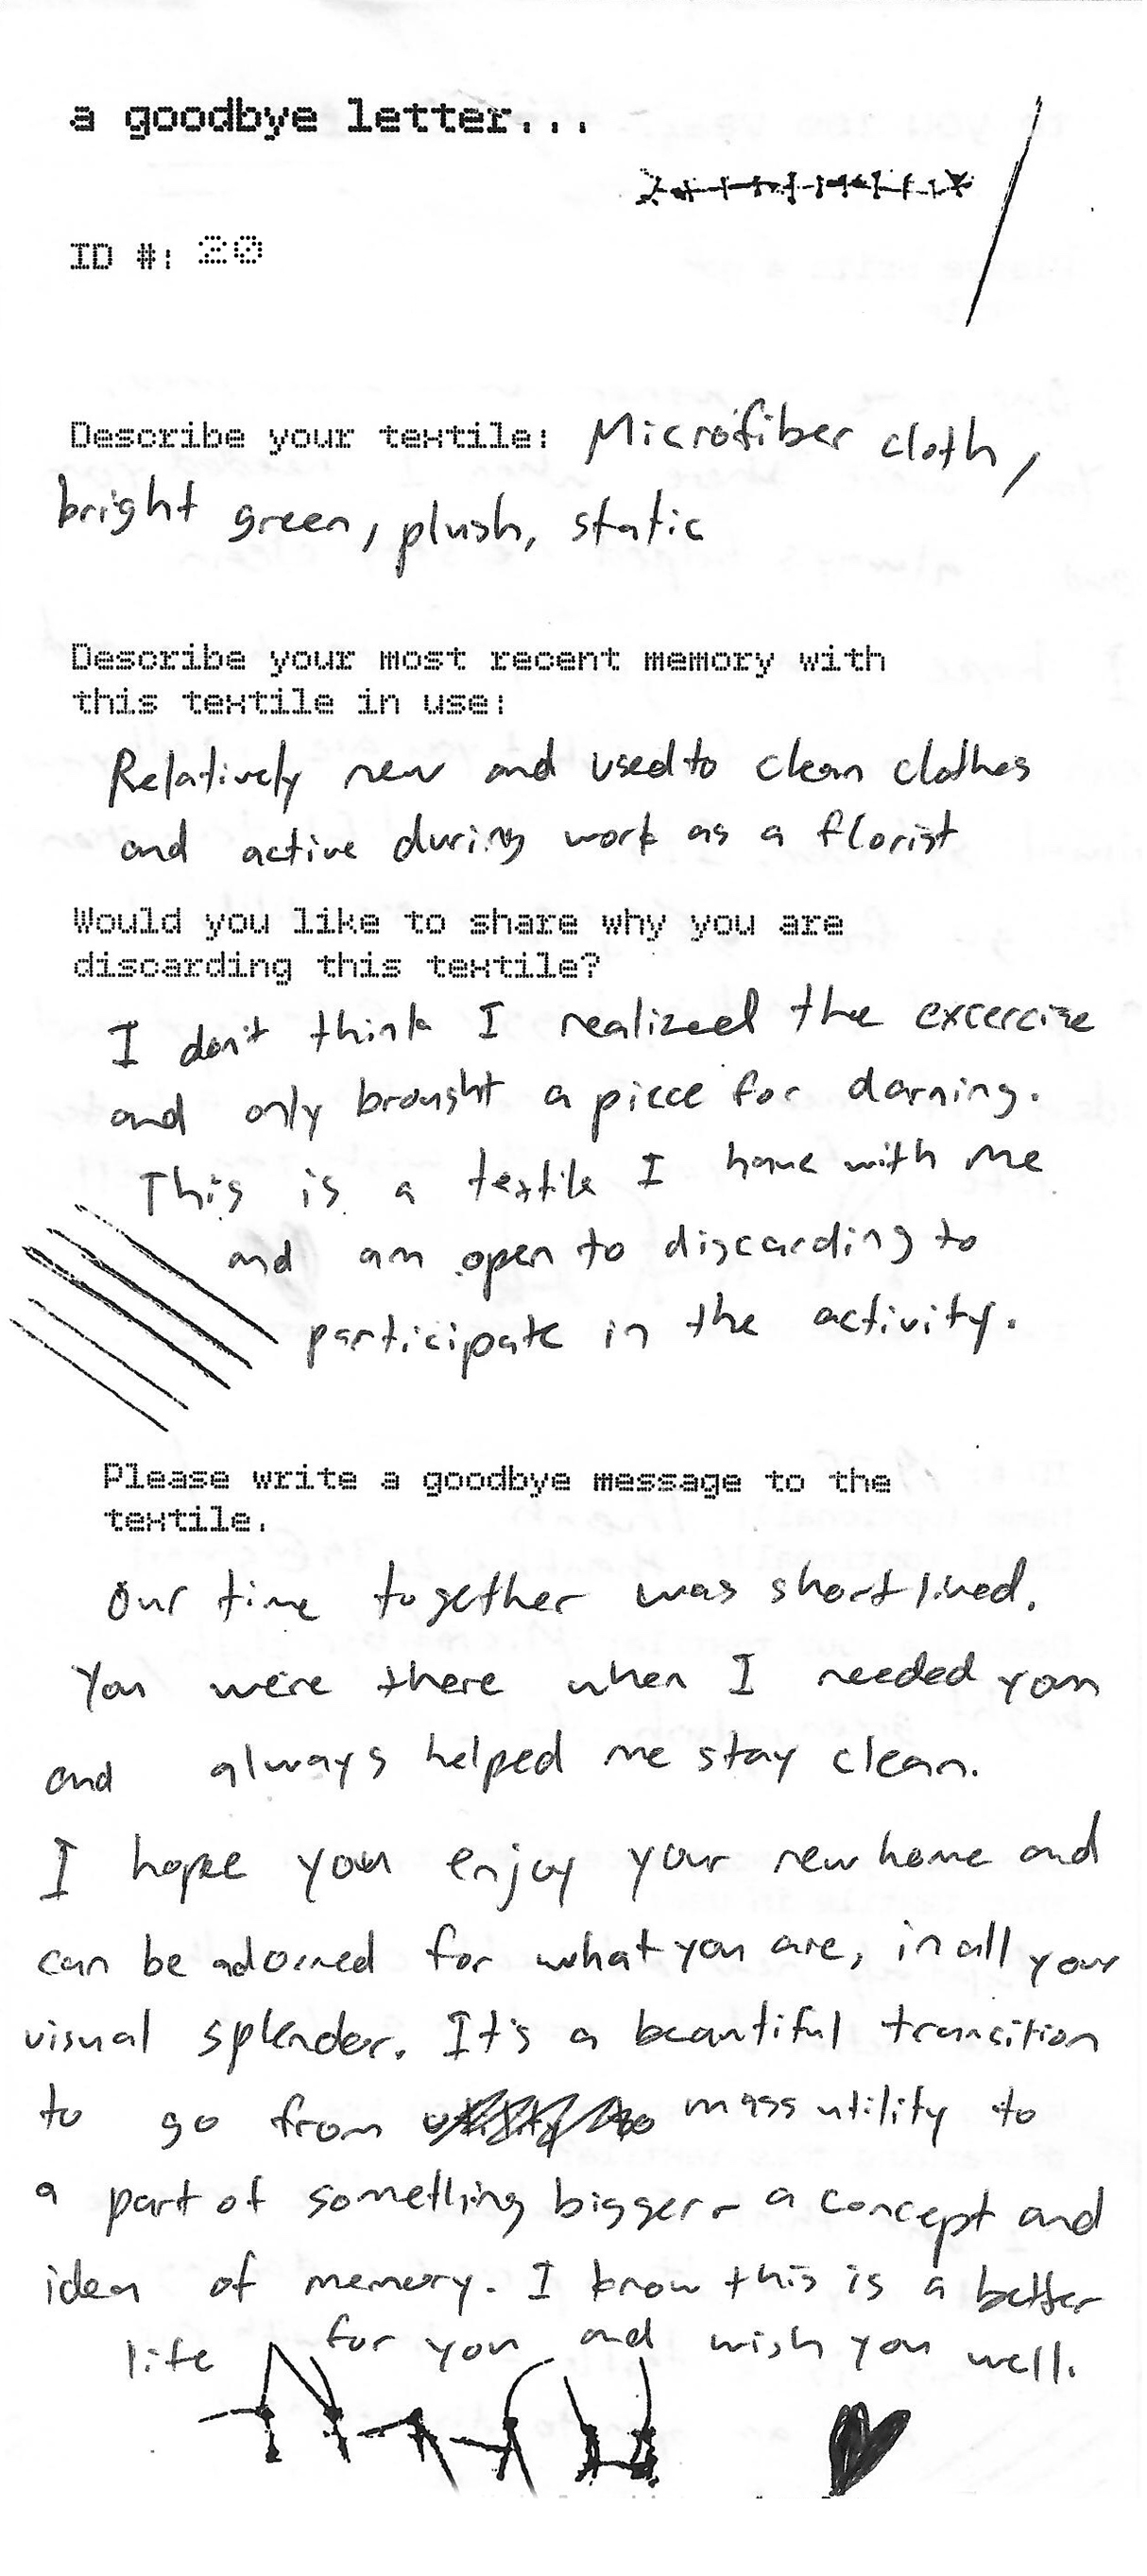 a goodbye letter...
ID #: 20
Describe your textile: Microfiber cloth,
bright green, plush, static
Describe your most recent memory with
this textile in use:
Relatively new and used to clean clothes
and active during work as a florist
Would you like to share why you are
discarding this textile?
I don't think I realized the excercize
and only brought a piece for darning.
This is a textile I have with me
and am open to discarding to
participate in the activity.
Please write a goodbye message to the
textile.
Our time together was short lived.
You were there when I needed you
and always helped me stay clean.
I hope you enjoy your new home and
can be adorned for what you are, in all your
visual splendor. It's a beautiful transition
to go from mass utility to
a part of something bigger - a concept and
idea of memory. I know this is a better
life for you and wish you well.